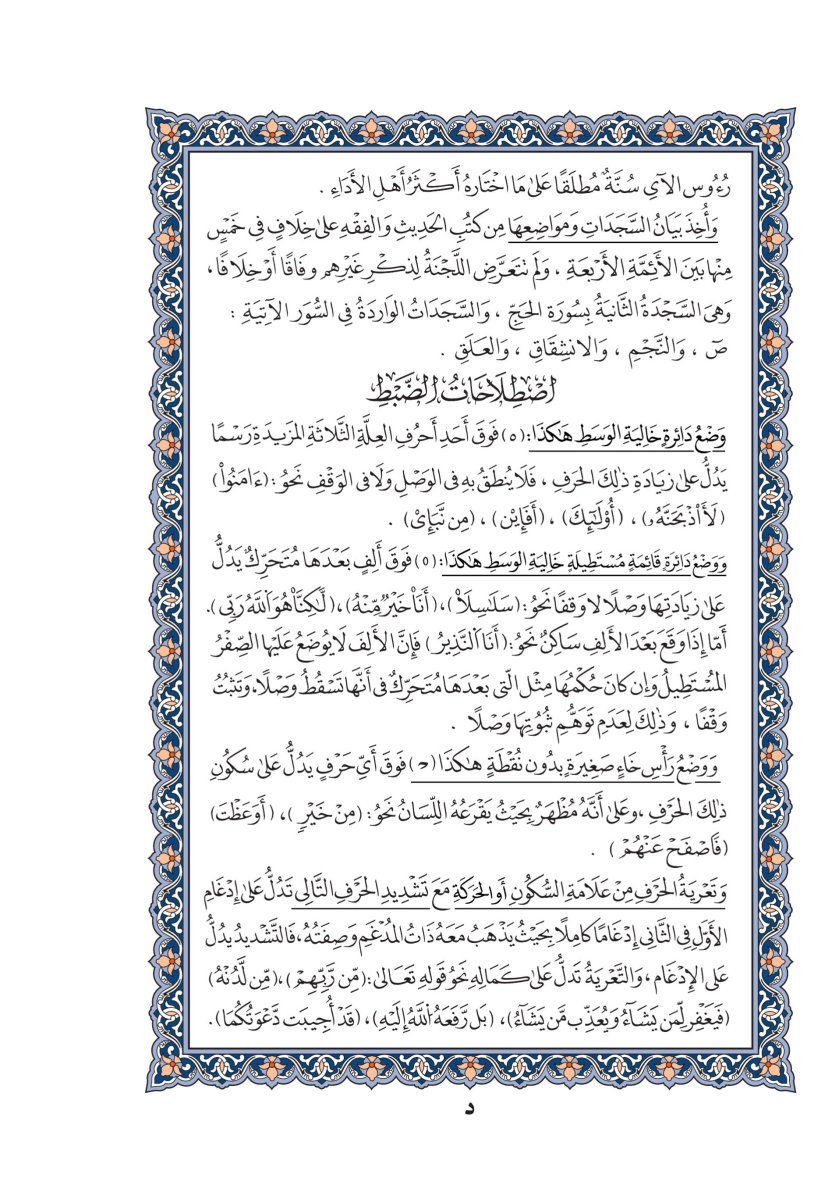 رُءُوسِ الآيِ سُنَّةٌ مُطلَقًا عَلىٰ مَا اخْتَارَهُ أَكْثَرُ أَهْلِ الأَدَاءِ .
وَأُخِذَ بَيَانُ السَّجَدَاتِ وَمَوَاضِعِهَا مِن كُتُبِ الحَدِيثِ وَالفِقْهِ عَلىٰ خِلَافٍ فِى خَمْسٍ
مِنْهَا بَينَ الأَئِمَّةِ الأَرْبَعَةِ ، وَلَم تَتَعَرَّضِ اللَّجْنَةُ لِذِكْرِ غَيْرِهِم وِفَاقًا أَوْ خِلَافًا ،
وَهِىَ السَّجْدَةُ الثَّانِيَةُ بِسُورَةِ الحَجِّ ، وَالسَّجَدَاتُ الوَارِدَةُ فِى السُّوَرِ الآتِيَةِ :
صٓ ، وَالنَّجْمِ ، وَالانشِقَاقِ ، وَالعَلَقِ .
اصْطِلَاحَاتُ الضَّبْطِ
وَضْعُ دَائِرَةٍ خَالِيَةِ الوَسَطِ هٰكَذَا : (ه) فَوْقَ أَحَدِ أَحْرُفِ العِلَّةِ الثَّلَاثَةِ المَزِيدَةِ رَسْمًا
يَدُلُّ عَلىٰ زِيَادَةِ ذٰلِكَ الحَرفِ ، فَلَا يُنطَقُ بِهِ فِى الوَصْلِ وَلَا فِى الوَقْفِ نَحوُ : (ءَامَنُواْ)
(لَأَاْذْبَحَنَّهُۥ) ، (أُوْلَـٰٓئِكَ) ، (أَفَإِيْن) ، (مِن نَّبَإِىْ) .
وَوَضْعُ دَائِرَةٍ قَائِمَةٍ مُسْتَطِيلَةٍ خَالِيَةِ الوَسَطِ هٰكَذَا : (٥) فَوْقَ أَلِفٍ بَعْدَهَا مُتَحَرِّكٌ يَدُلُّ
عَلىٰ زِيَادَتِهَا وَصْلًا لا وَقْفًا نَحوُ : (سَلَسِلَا۠) ، (أَنَا۠ خَيْرٌ مِّنْهُ) ، (لَّٰكِنَّا۠ هُوَ ٱللَّهُ رَبِّى) .
أَمّا إِذَا وَقَعَ بَعْدَ الأَلِفِ سَاكِنٌ نَحوُ : (أَنَا ٱلنَّذِيرُ) فَإِنَّ الأَلِفَ لَا يُوضَعُ عَلَيْهَا الصِّفْرُ
المُسْتَطِيلُ وَإِن كَانَ حُكْمُهَا مِثْلَ الَّتِى بَعْدَهَا مُتَحَرِّكٌ فِى أَنَّهَا تَسْقُطُ وَصْلًا ، وَتَثبُتُ
وَقْفًا ، وَذٰلِكَ لِعَدَمِ تَوَهُّمِ ثُبُوتِهَا وَصْلًا .
وَوَضْعُ رَأْسِ خَاءٍ صَغِيرَةٍ بِدُونِ نُقْطَةٍ هٰكَذَا (ۡ) فَوْقَ أَىِّ حَرْفٍ يَدُلُّ عَلىٰ سُكُونِ
ذٰلِكَ الحَرْفِ ، وَعَلىٰ أَنَّهُ مُظْهَرٌ بِحَيْثُ يَقْرَعُهُ اللِّسَانُ نَحوُ : (مِنْ خَيْرٍ) ، (أَوَعَظْتَ)
(فَٱصْفَحْ عَنْهُمْ) .
وَتَعْرِيَةُ الحَرْفِ مِنْ عَلَامَةِ السُّكُونِ أَوِ الحَرَكَةِ مَعَ تَشْدِيدِ الحَرْفِ التَّالِى تَدُلُّ عَلىٰ إِدْغَامِ
الأَوَّلِ فِى الثَّانِى إِدْغَامًا كَامِلًا بِحَيْثُ يَذْهَبُ مَعَهُ ذَاتُ المُدْغَمِ وَصِفَتُهُ ، فَالتَّشْدِيدُ يَدُلُّ
عَلى الإِدْغَامِ ، وَالتَّعْرِيَةُ تَدُلُّ عَلىٰ كَمَالِهِ نَحوُ قَولِهِ تَعَالىٰ : (مِّن رَّبِّهِمْ) ، (مِن لَّدُنْهُ)
(فَيَغْفِرُ لِمَن يَشَآءُ وَيُعَذِّبُ مَن يَشَآءُ) ، (بَل رَّفَعَهُ ٱللَّهُ إِلَيْهِ) ، (قَدْ أُجِيبَت دَّعْوَتُكُمَا) .
د